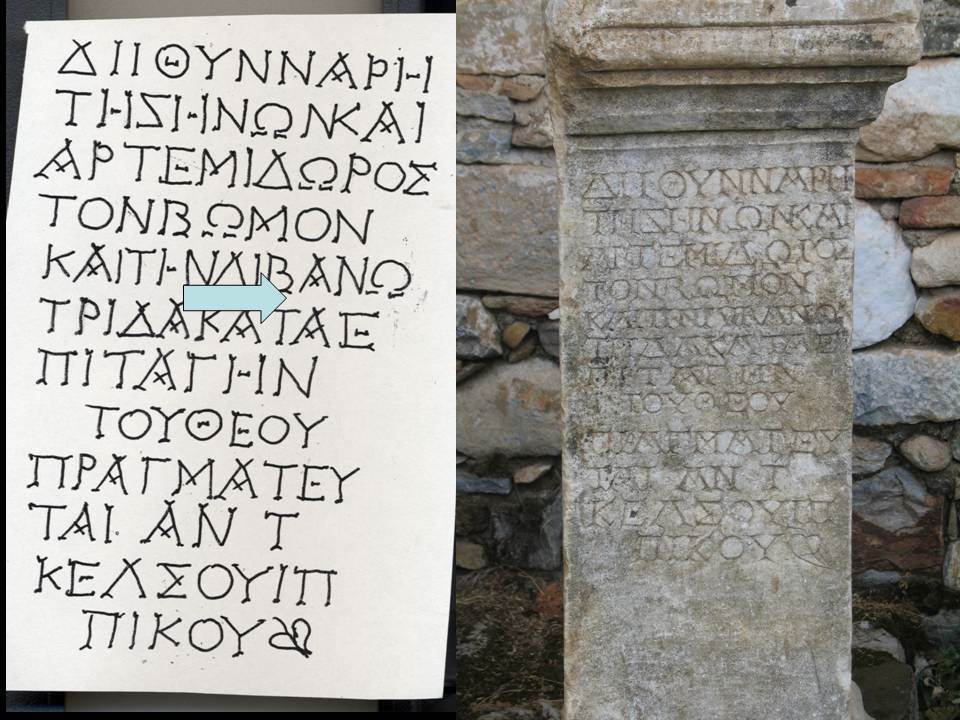 ΔΙΙΘΥΝΝΑΡΗ
ΤΗΖΗΝΩΝΚΑΙ
ΑΡΤΕΜΙΔΩΡΟΣ
ΤΟΝΒΩΜΟΝ
ΚΑΙΤΗΝΛΙΒΑΝΩ
ΤΡΙΔΑΚΑΤΑΕ
ΠΙΤΑΓΗΝ
ΤΟΥΘΕΟΥ
ΠΡΑΓΜΑΤΕΥ
ΤΑΙ ΑΝ Τ
ΚΕΛΣΟΥΙΠ
ΠΙΚΟΥ
ΔΙΙΘΥΝΝΑΡΗ
ΤΗΖΗΝΩΝΚΑΙ
ΑΡΤΕΜΙΔΩΡΟΣ
ΤΟΝΒΩΜΟΝ
ΚΑΙΤΗΝΛΙΒΑΝΩ
ΤΡΙΔΑΚΑΤΑΕ
ΠΙΤΑΓΗΝ
ΤΟΥΘΕΟΥ
ΠΡΑΓΜΑΤΕΥ
ΤΑΙ ΑΝ Τ
ΚΕΛΣΟΥΙΠ
ΠΙΚΟΥ